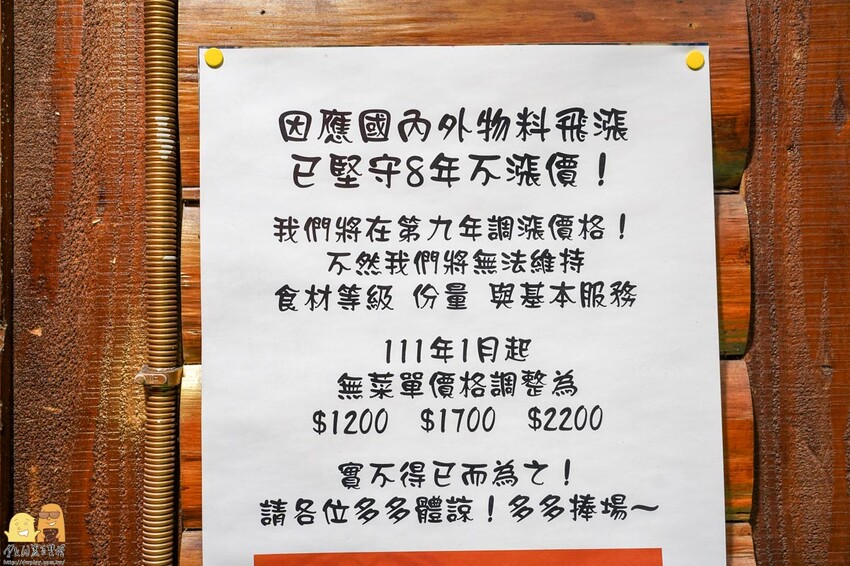 因應國內外物料飛漲
已堅守8年不漲價！
我們將在第九年調漲價格！
不然我們將無法維持
食材等級 份量 與基本服務
111年1月起
無菜單價格調整為
$1200 $1700 $2200
實不得已而為之！
請各位多多體諒！多多捧場～